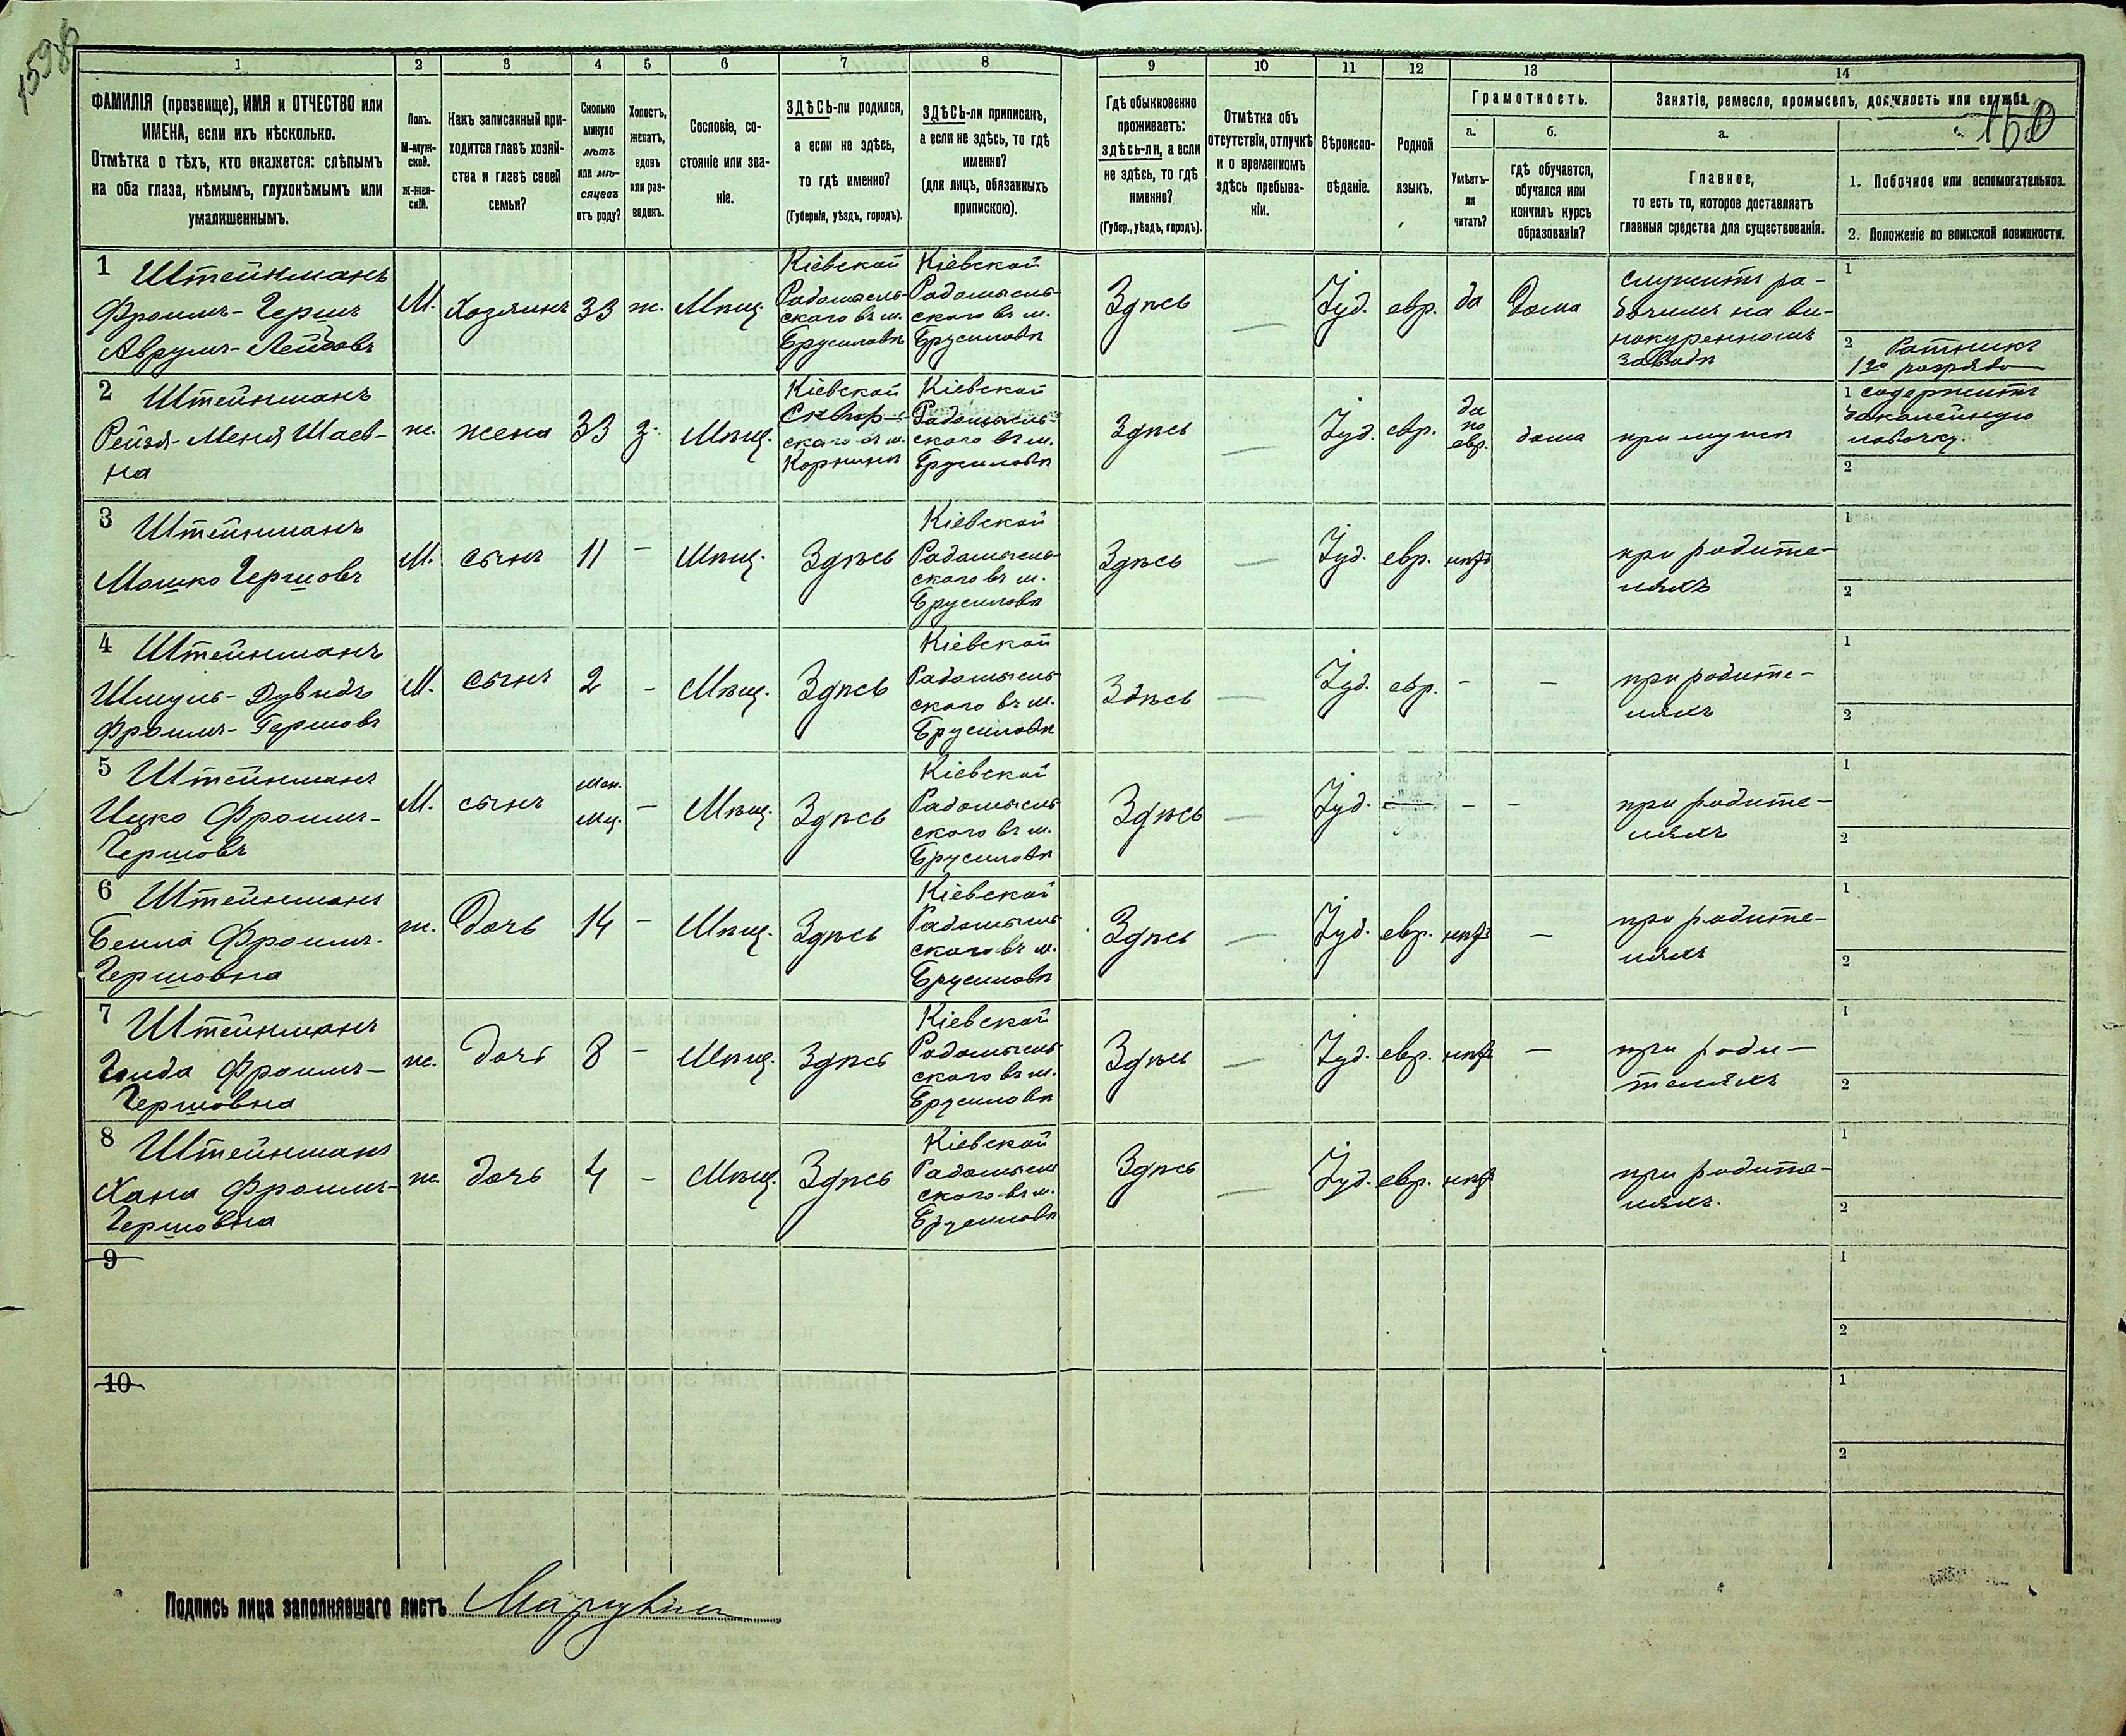 1598
160
1 2 3 4 5 6 7 8 9 10 11 12 13 14
ФАМИЛІЯ (прозвище), ИМЯ и ОТЧЕСТВО или
ИМЕНА, если ихъ нѣсколько.
Отмѣтка о тѣхъ, кто окажется: слѣпымъ
на оба глаза, нѣмымъ, глухонѣмымъ или
умалишеннымъ.
Полъ.
М-муж-
ской.
ж-жен-
скій.
Какъ записанный при-
ходится главѣ хозяй-
ства и главѣ своей
семьи?
Сколько
минуло
лѣтъ
или мѣ-
сяцевъ
отъ роду?
Холостъ,
женатъ,
вдовъ
или раз-
веденъ.
Сословіе, со-
стояніе или зва-
ніе.
ЗДѢСЬ-ли родился,
а если не здѣсь,
то гдѣ именно?
(Губернія, уѣздъ, городъ).
ЗДѢСЬ-ли приписанъ,
а если не здѣсь, то гдѣ
именно?
(для лицъ, обязанныхъ
припискою).
Гдѣ обыкновенно
проживаетъ:
здѣсь-ли, а если
не здѣсь, то гдѣ
именно?
(Губер., уѣздъ, городъ).
Отмѣтка объ
отсутствіи, отлучкѣ
и о временномъ
здѣсь пребыва-
ніи.
Вѣроиспо-
вѣданіе.
Родной
языкъ.
Грамотность.
а.
Умѣетъ-
ли
читать?
б.
гдѣ обучается,
обучался или
кончилъ курсъ
образованія?
Занятіе, ремесло, промыселъ, должность или служба.
а.
Главное,
то есть то, которое доставляетъ
главныя средства для существованія.
1. Побочное или вспомогательное.
2. Положеніе по воинской повинности.
1 Штейнманъ
Фроимъ-Гершъ
Аврумъ-Лейбовъ
М.
Хозяинъ
33
ж.
Мѣщ.
Кіевской
Радомысль-
скаго въ м.
Брусиловѣ
Кіевской
Радомысль-
скаго въ м.
Брусиловѣ
Здѣсь
—
Іуд.
евр.
да
Дома
служитъ ра-
бочимъ на ви-
нокуренномъ
заводѣ
1
2 Ратникъ
1го разряда
2 Штейнманъ
Рейзя-Меня Шаев-
на
ж.
жена
33
з.
Мѣщ.
Кіевской
Сквир-
скаго въ м.
Корнинѣ
Кіевской
Радомысль-
скаго въ м.
Брусиловѣ
Здѣсь
—
Іуд.
евр.
да
по
евр.
дома
при мужѣ
1 содержитъ
бакалейную
лавочку.
2
3 Штейнманъ
Мошко Гершовъ
М.
сынъ
11
—
Мѣщ.
Здѣсь
Кіевской
Радомысль-
скаго въ м.
Брусиловѣ
Здѣсь
—
Іуд.
евр.
нѣтъ
при родите-
ляхъ
1
2
4 Штейнманъ
Шмуль-Дувидъ
Фроимъ-Гершовъ
М.
сынъ
2
-
Мѣщ.
Здѣсь
Кіевской
Радомысль
скаго въ м.
Брусиловѣ
Здѣсь
—
Іуд.
евр.
-
—
при родите-
ляхъ
1
2
5 Штейнманъ
Ицко Фроимъ-
Гершовъ
М.
сынъ
—
Мѣщ.
Здѣсь
Кіевской
Радомысль
скаго въ м.
Брусиловѣ
Здѣсь
—
Іуд.
—
-
-
при родите-
ляхъ
1
2
6 Штейнманъ
Бейла Фроимъ-
Гершовна
ж.
Дочь
14
—
Мѣщ.
Здѣсь
Кіевской
Радомысль
скаго въ м.
Брусиловѣ
Здѣсь
—
Іуд.
евр.
нѣтъ
—
при родите-
ляхъ
1
2
7 Штейнманъ
Фроимъ-
Гершовна
ж.
дочь
8
—
Мѣщ.
Здѣсь
Кіевской
Радомысль
скаго въ м.
Брусиловѣ
Здѣсь
—
Іуд.
евр.
нѣтъ
—
при роди-
теляхъ
1
2
8 Штейнманъ
Хана Фроимъ-
Гершовна
ж.
дочь
4
-
Мѣщ.
Здѣсь
Кіевской
Радомысль
скаго въ м.
Брусиловѣ
Здѣсь
—
Іуд.
евр.
нѣтъ
при родите-
ляхъ.
1
2
9
1
2
10
1
2
Подпись лица заполнявшаго листъ